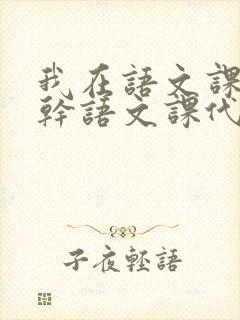 我在語文課
幹語文課代
子夜輕語